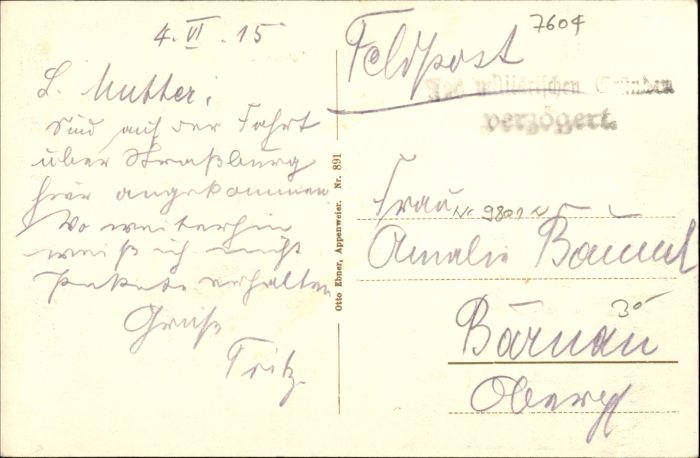 4. VI. 15
L. Mutter!
Sind auf der Fahrt
über Straßburg
hier angekommen
Wo weiterhin
weiß ich nicht
Pakete erhalten
Gruß
Fritz
Otto Ebner, Appenweier. Nr. 891
7604
Feldpost
Aus militärischen Gründen
verzögert.
Frau
Nr. 9801
Amalie
Bärnau
30
Oberpf